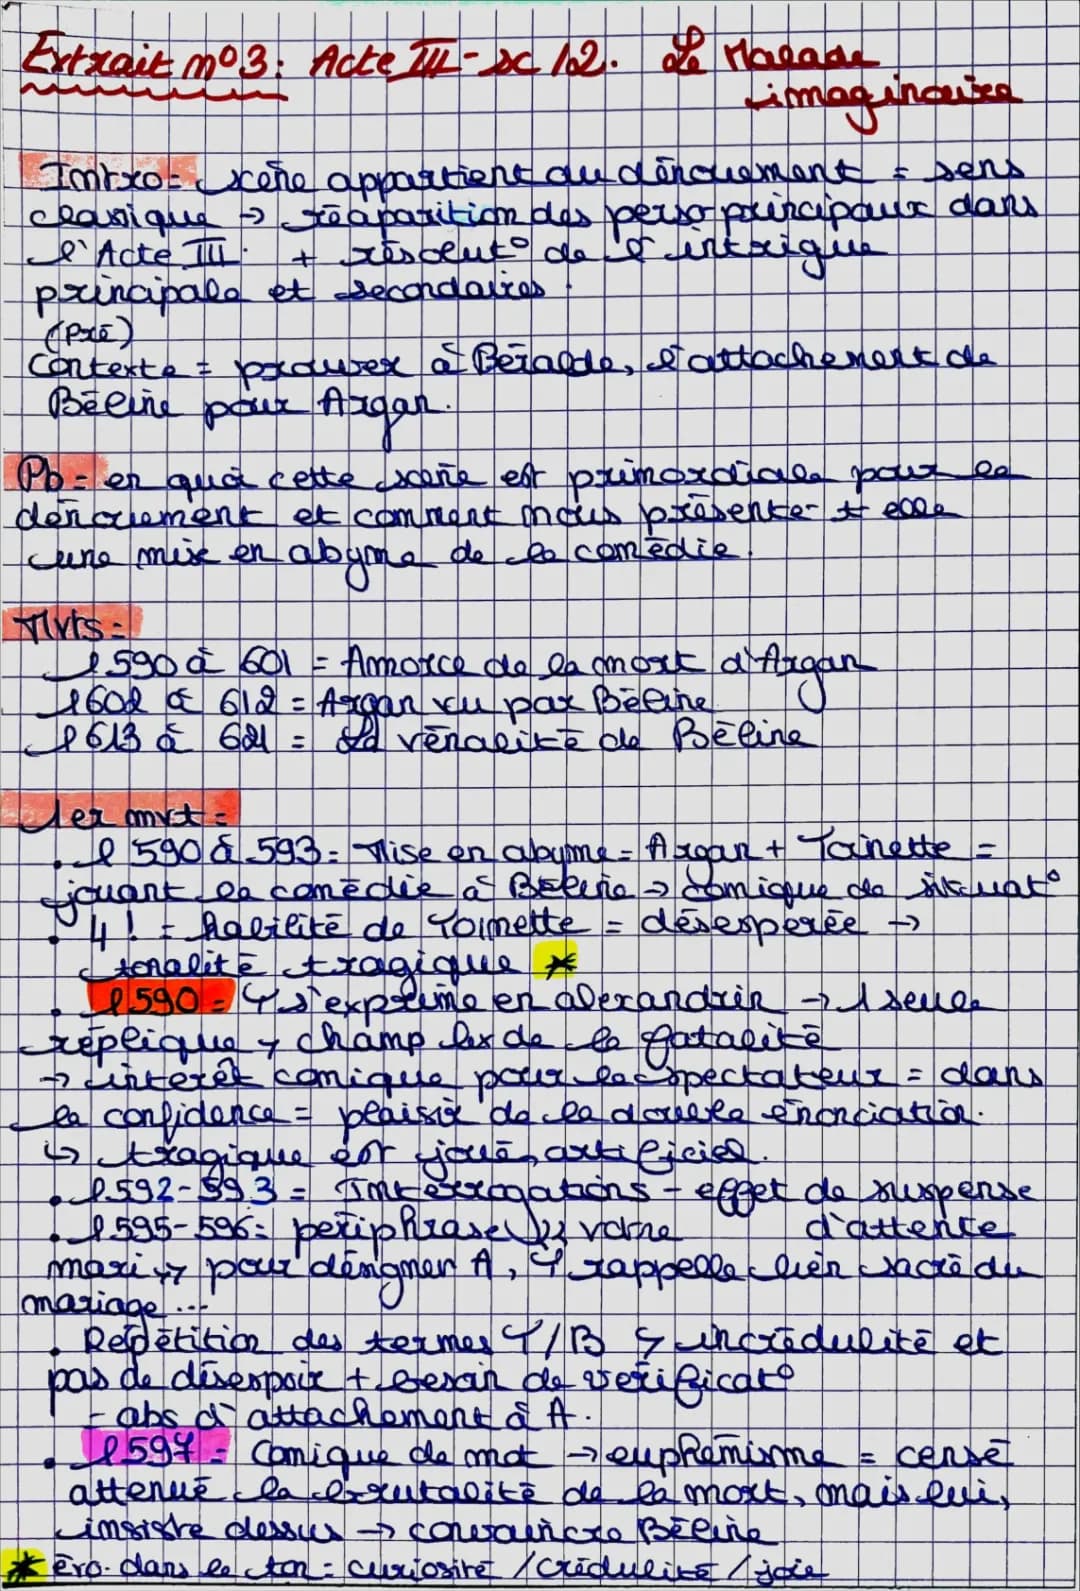 Extrait n°3: Acte III - sc 12. Le Malade
imaginaire
Intro = scène appartient au dénouement = sens
classique → réaparition des perso principaux dans
l'Acte III. + résolut° de l'intrigue
principale et secondaires.
(Pré)
Contexte = prouver à Béralde, l'attachement de
Béline pour Argan.
Pb = en quoi cette scène est primordiale pour le
dénouement et comment nous présente-t elle
une mise en abyme de la comédie.
Mvts =
l 590 à 601 = Amorce de la mort d'Argan
l 602 à 612 = Argan vu par Béline
l 613 à 621 = La vénalité de Béline
1er mvt =
. l 590 à 593 = Mise en abyme = Argan + Toinette =
jouant la comédie à Béline → comique de situat°
. 4 ! = habilité de Toinette = désesperée →
tonalité tragique *
. l 590 = T s'exprime en alexandrin → 1 seule
réplique + champ lex de la fatalité
→ interêt comique pour le spectateur = dans
la confidence = plaisir de la double énonciation.
↳ tragique est joué, artificiel.
. l 592-593 = Interrogations - effet de suspense
d'attente
. l 595-596 = périphrase << votre
mari >> pour désigner A, T rappelle lien sacré du
mariage ...
. Répétition des termes T/B ↳ incrédulité et
pas de désespoir + besoin de vérificat°
- abs d'attachement à A.
. l 597 = Comique de mot → euphémisme = censé
attenué la brutalité de la mort, mais lui,
insiste dessus → convaincre Béline
* évo. dans le ton = curiosité / crédulité / joie